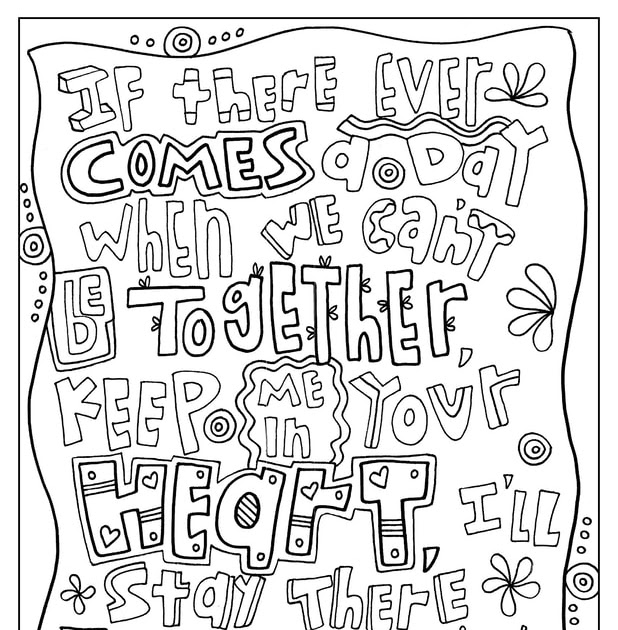 If there EVEr
COMES a DaY
whEN WE can't
BE TogEThEr,
KEEP ME in YoUr
HEarT, I'll
STay ThErE